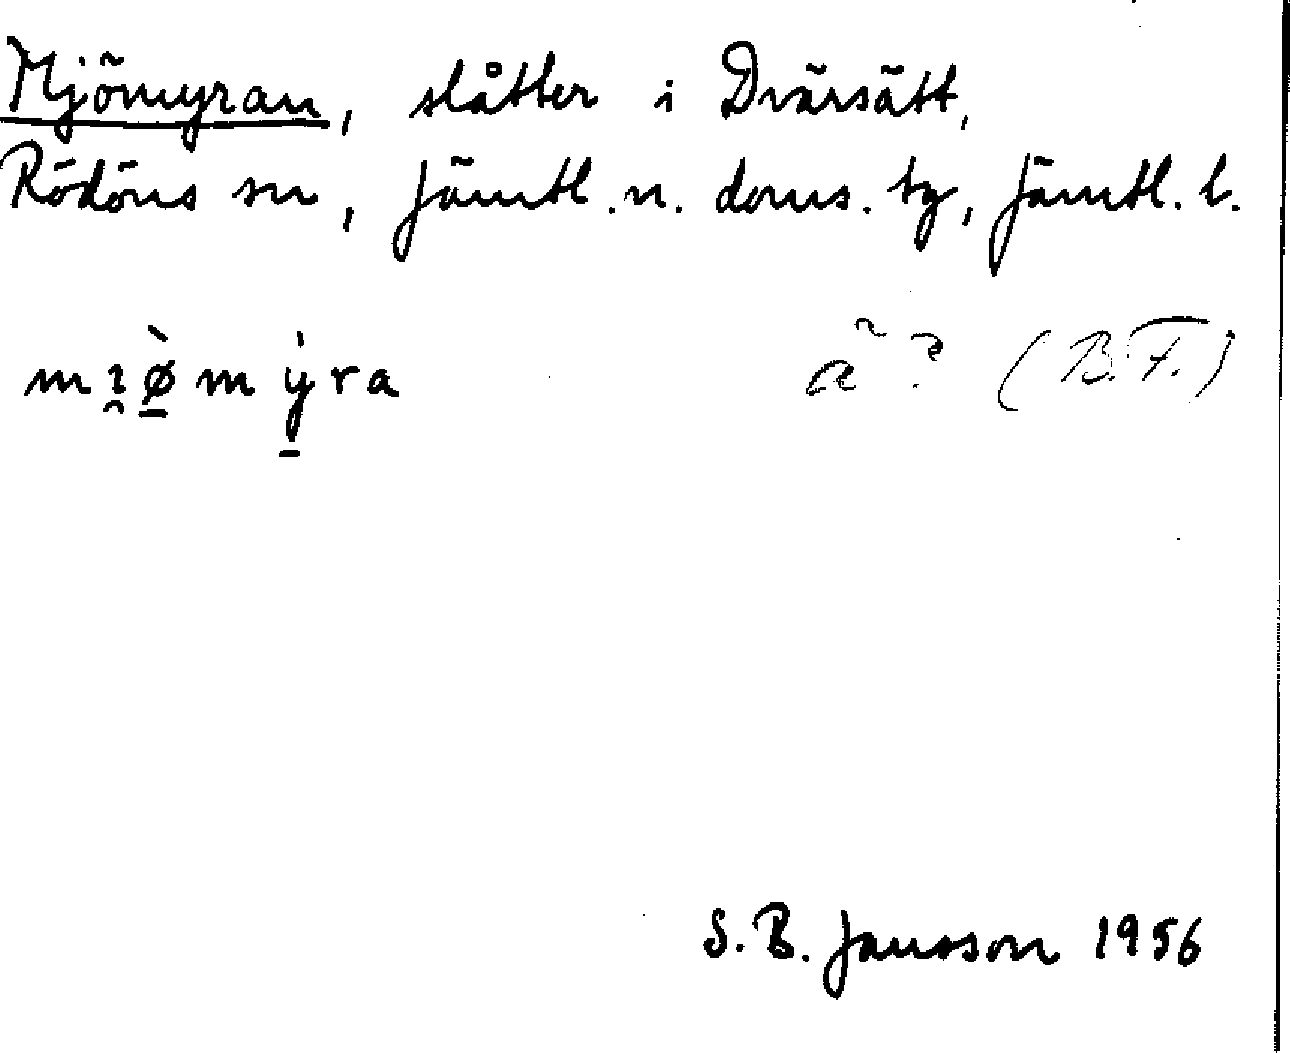 Mjömyran, slåtter i Dvärsätt,
Rödöns sn, Jämtl. n. doms. tg, Jämtl. l.
mı̯ø̠̀m ẏ̠ra ã ? (B.F.)
S. B. Jansson 1956